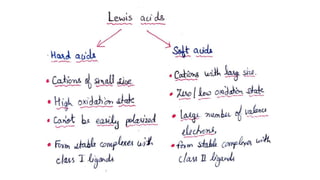 Lewis acids
Hard acids
• Cations of small size
• High oxidation state
• Can't be easily polarized
• Form stable complexes with
class I ligands
Soft acids
• Cations with large size.
• Zero/low oxidation state
• large number of valence
electrons,
• form stable complexes with
class II ligands